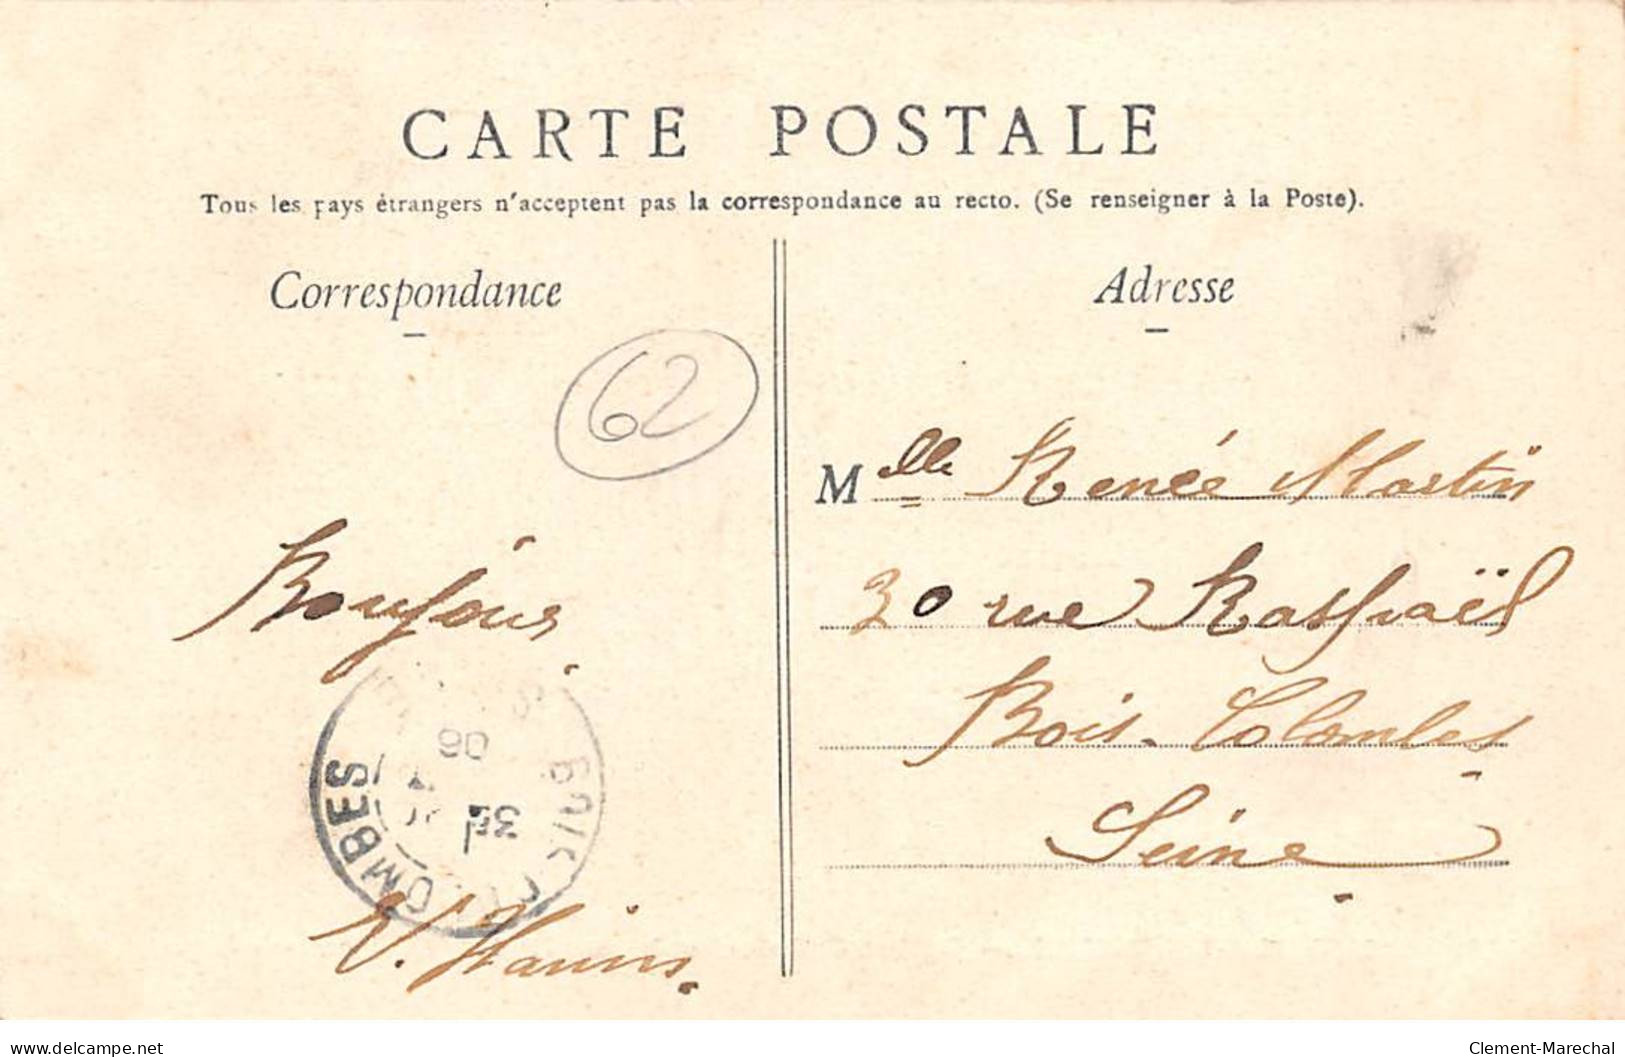 CARTE POSTALE
Tous les pays étrangers n'acceptent pas la correspondance au recto. (Se renseigner à la Poste).
Correspondance
Adresse
62
Mlle Renée Martin
30 rue Raspaël
Bois-Colombes
Seine
Bonjour
BOIS COLOMBES
3E
06
V.
delcampe.net
Clement-Marechal